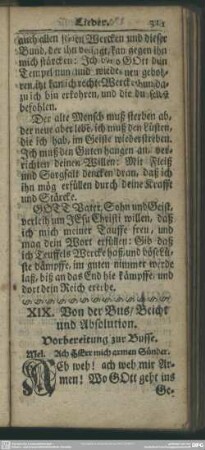 Lieder.
auch allen seinen Wercken und dieser
Bund, der ihn verlagt, kan gegen ihn
mich stärcken: Ich bin GOtt
Tempel nun und wieder neu gebohren
ren, ihr kan ich rechte Werck thun da-
zu ich bin erkohren, und die du selbst
befohlen.
Der alte Mensch muß sterben ab,
der neue aber leb, ich muß den Lüsten,
die ich hab, im Geiste widerstreben.
Ich muß dem Guten hangen an, ver-
richten deinen Willen: Mit Fleiß
und Sorgfalt dencken dran, daß ich
ihn mög erfüllen durch deine Krafft
und Stärcke.
GOTT Vater, Sohn und Geist,
verleih um JEsu Christi willen, daß
ich mich meiner Tauffe freu, und
mag dein Wort erfüllen: Gib daß
ich Teuffels Wercke haß, und böse Lü-
ste dämpffe, im guten nimmer werde
laß, biß an das End hie kämpffe, und
dort dein Reich ererbe.
XIX. Von der Bus/ Beicht
und Absolution.
Vorbereitung zur Busse.
Mel. Ach HErr mich armen Sünder.
ACh weh! ach weh mir Ar-
men! Wo GOtt geht ins
Ge-